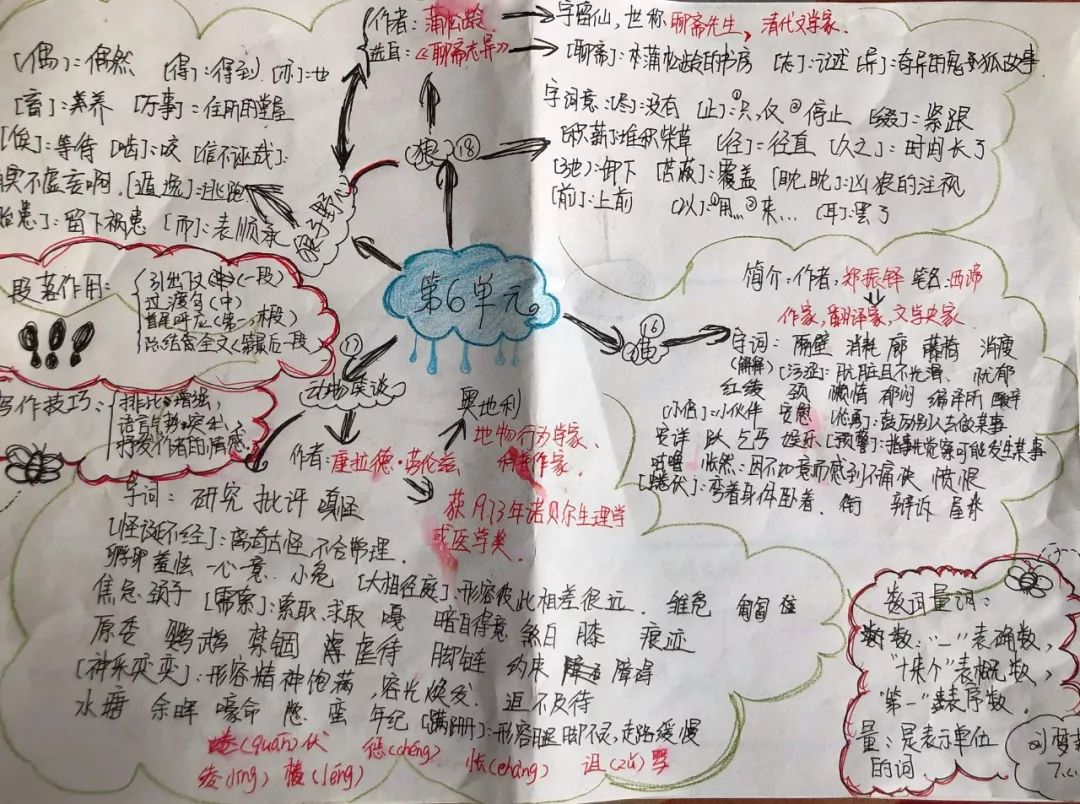 第6单元。
狼 18
作者：蒲松龄
字留仙，世称聊斋先生，清代文学家.
选自：《聊斋志异》
[聊斋]：本蒲松龄的书房 [志]：记述 [异]：奇异的鬼和狐故事
字词意：[尽]：没有 [止]：①只，仅 ②停止 [缀]：紧跟
[积薪]：堆积柴草 [径]=径直 [久之]：时间长了
[弛]：卸下 [苫蔽]：覆盖 [眈眈]：凶狠的注视
[前]：上前 [以]：①用… ②来… [耳]：罢了
狼子野心
[偶]：偶然 [得]：得到 [亦]：也
[畜]：养 [厅事]：住所的堂屋
[俟]：等待 [啮]：咬 [信不诬哉]：
果不虚妄啊. [遁逸]：逃跑
贻患]：留下祸患 [而]：表顺承
段落作用：
引出下文(一段)
过渡句(中)
首尾呼应(第一，末段)
总结全文(最后一段
写作技巧：
排比：增强，
抒发作者的情感
17
动物笑谈
作者：康拉德·劳伦兹
奥地利
动物行为学家、
科普作家.
获1973年诺贝尔生理学
或医学奖.
字词：研究 批评 嗔怪
[怪诞不经]：离奇古怪，不合常理.
孵卵 羞怯 一心一意 小凫 [大相径庭]：形容彼此相差很远. 雏凫 匍匐
焦急 颈子 [需索]：索取，求取 嘎 暗自得意 煞 膝 痕迹
原委 鹦鹉 禁锢 虐待 脚链 约束 障碍
[神采奕奕]：形容精神饱满，容光焕发. 迫不及待
水塘 余晖 嚎 蛮 年纪 [蹒跚]：形容腿脚不灵，走路缓慢
蜷(quán)伏 惩(chéng) 怅(chàng) 诅(zǔ)
绫(líng) 棱(léng)
16
猫
简介：作者，郑振铎 笔名：西谛
作家，翻译家，文学史家.
字词：隔壁 消耗 廊 藤椅 消瘦
(解释) [污涩]：肮脏且不光滑. 忧郁
红绫 颈 懒惰 郁闷
[小侣]：小伙伴 安慰 [怂恿]：鼓励别人去做某事
安详 乞丐 娱乐 [预警]：事先觉察可能发生某事
怅然：因不如意而感到不痛快 愤恨
[蜷伏]：弯着身体卧着. 衔 辩诉 屋脊
数词量词：
数："一"表确数，
"十来个"表概数，
"第一"表序数.
量：是表示单位
的词